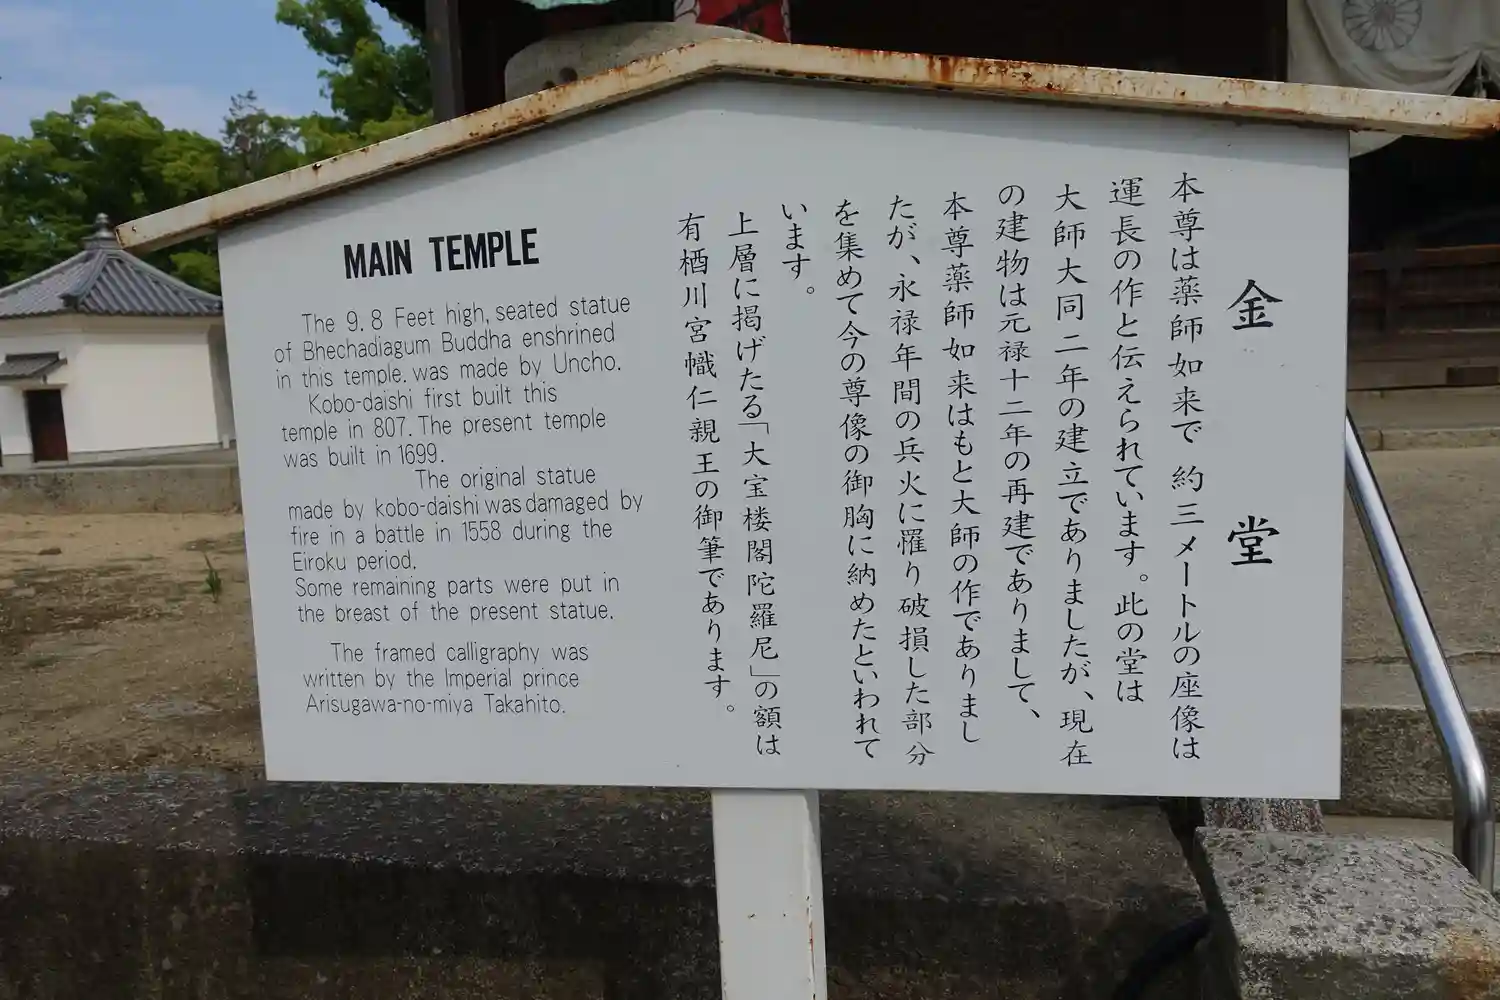 金堂
本尊は薬師如来で 約三メートルの座像は
運長の作と伝えられています。此の堂は
大師大同二年の建立でありましたが、現在
の建物は元禄十二年の再建でありまして、
本尊薬師如来はもと大師の作でありまし
たが、永禄年間の兵火に罹り破損した部分
を集めて今の尊像の御胸に納めたといわれて
います。
上層に掲げたる「大宝楼閣陀羅尼」の額は
有栖川宮幟仁親王の御筆であります。
MAIN TEMPLE
The 9.8 Feet high, seated statue
of Bhechadiagum Buddha enshrined
in this temple. was made by Uncho.
Kobo-daishi first built this
temple in 807. The present temple
was built in 1699.
The original statue
made by kobo-daishi was damaged by
fire in a battle in 1558 during the
Eiroku period.
Some remaining parts were put in
the breast of the present statue.
The framed calligraphy was
written by the Imperial prince
Arisugawa-no-miya Takahito.